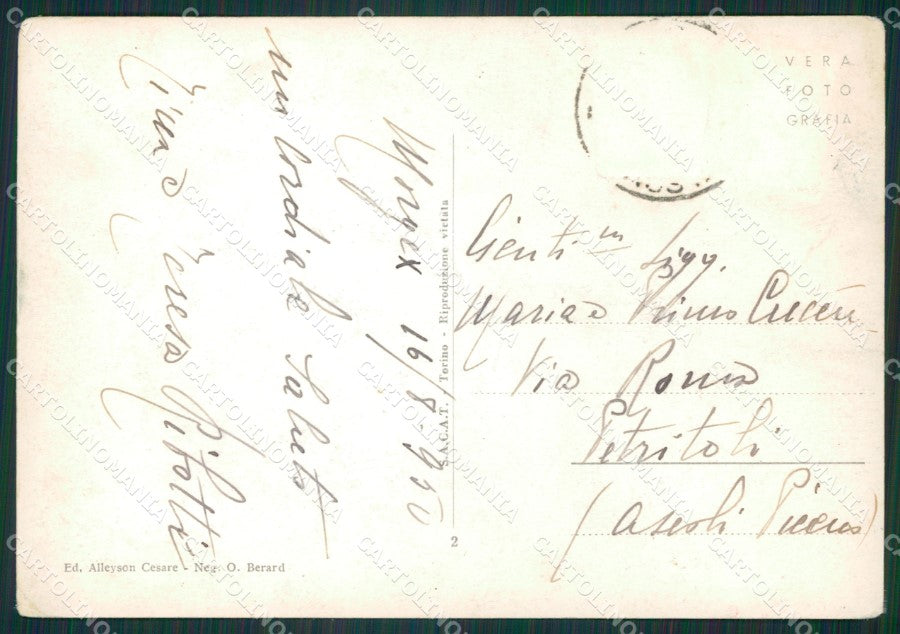 Morgex 16/8-950
un cordiale saluto
Teresa Ribotti
VERA
FOTO
GRAFIA
Genti m Sigg.
Maria e Primo
Via Roma
Petritoli
(Ascoli Piceno)
S.A.C.A.T. Torino - Riproduzione vietata
2
Ed. Alleyson Cesare - Neg. O. Berard
CARTOLINOMANIA